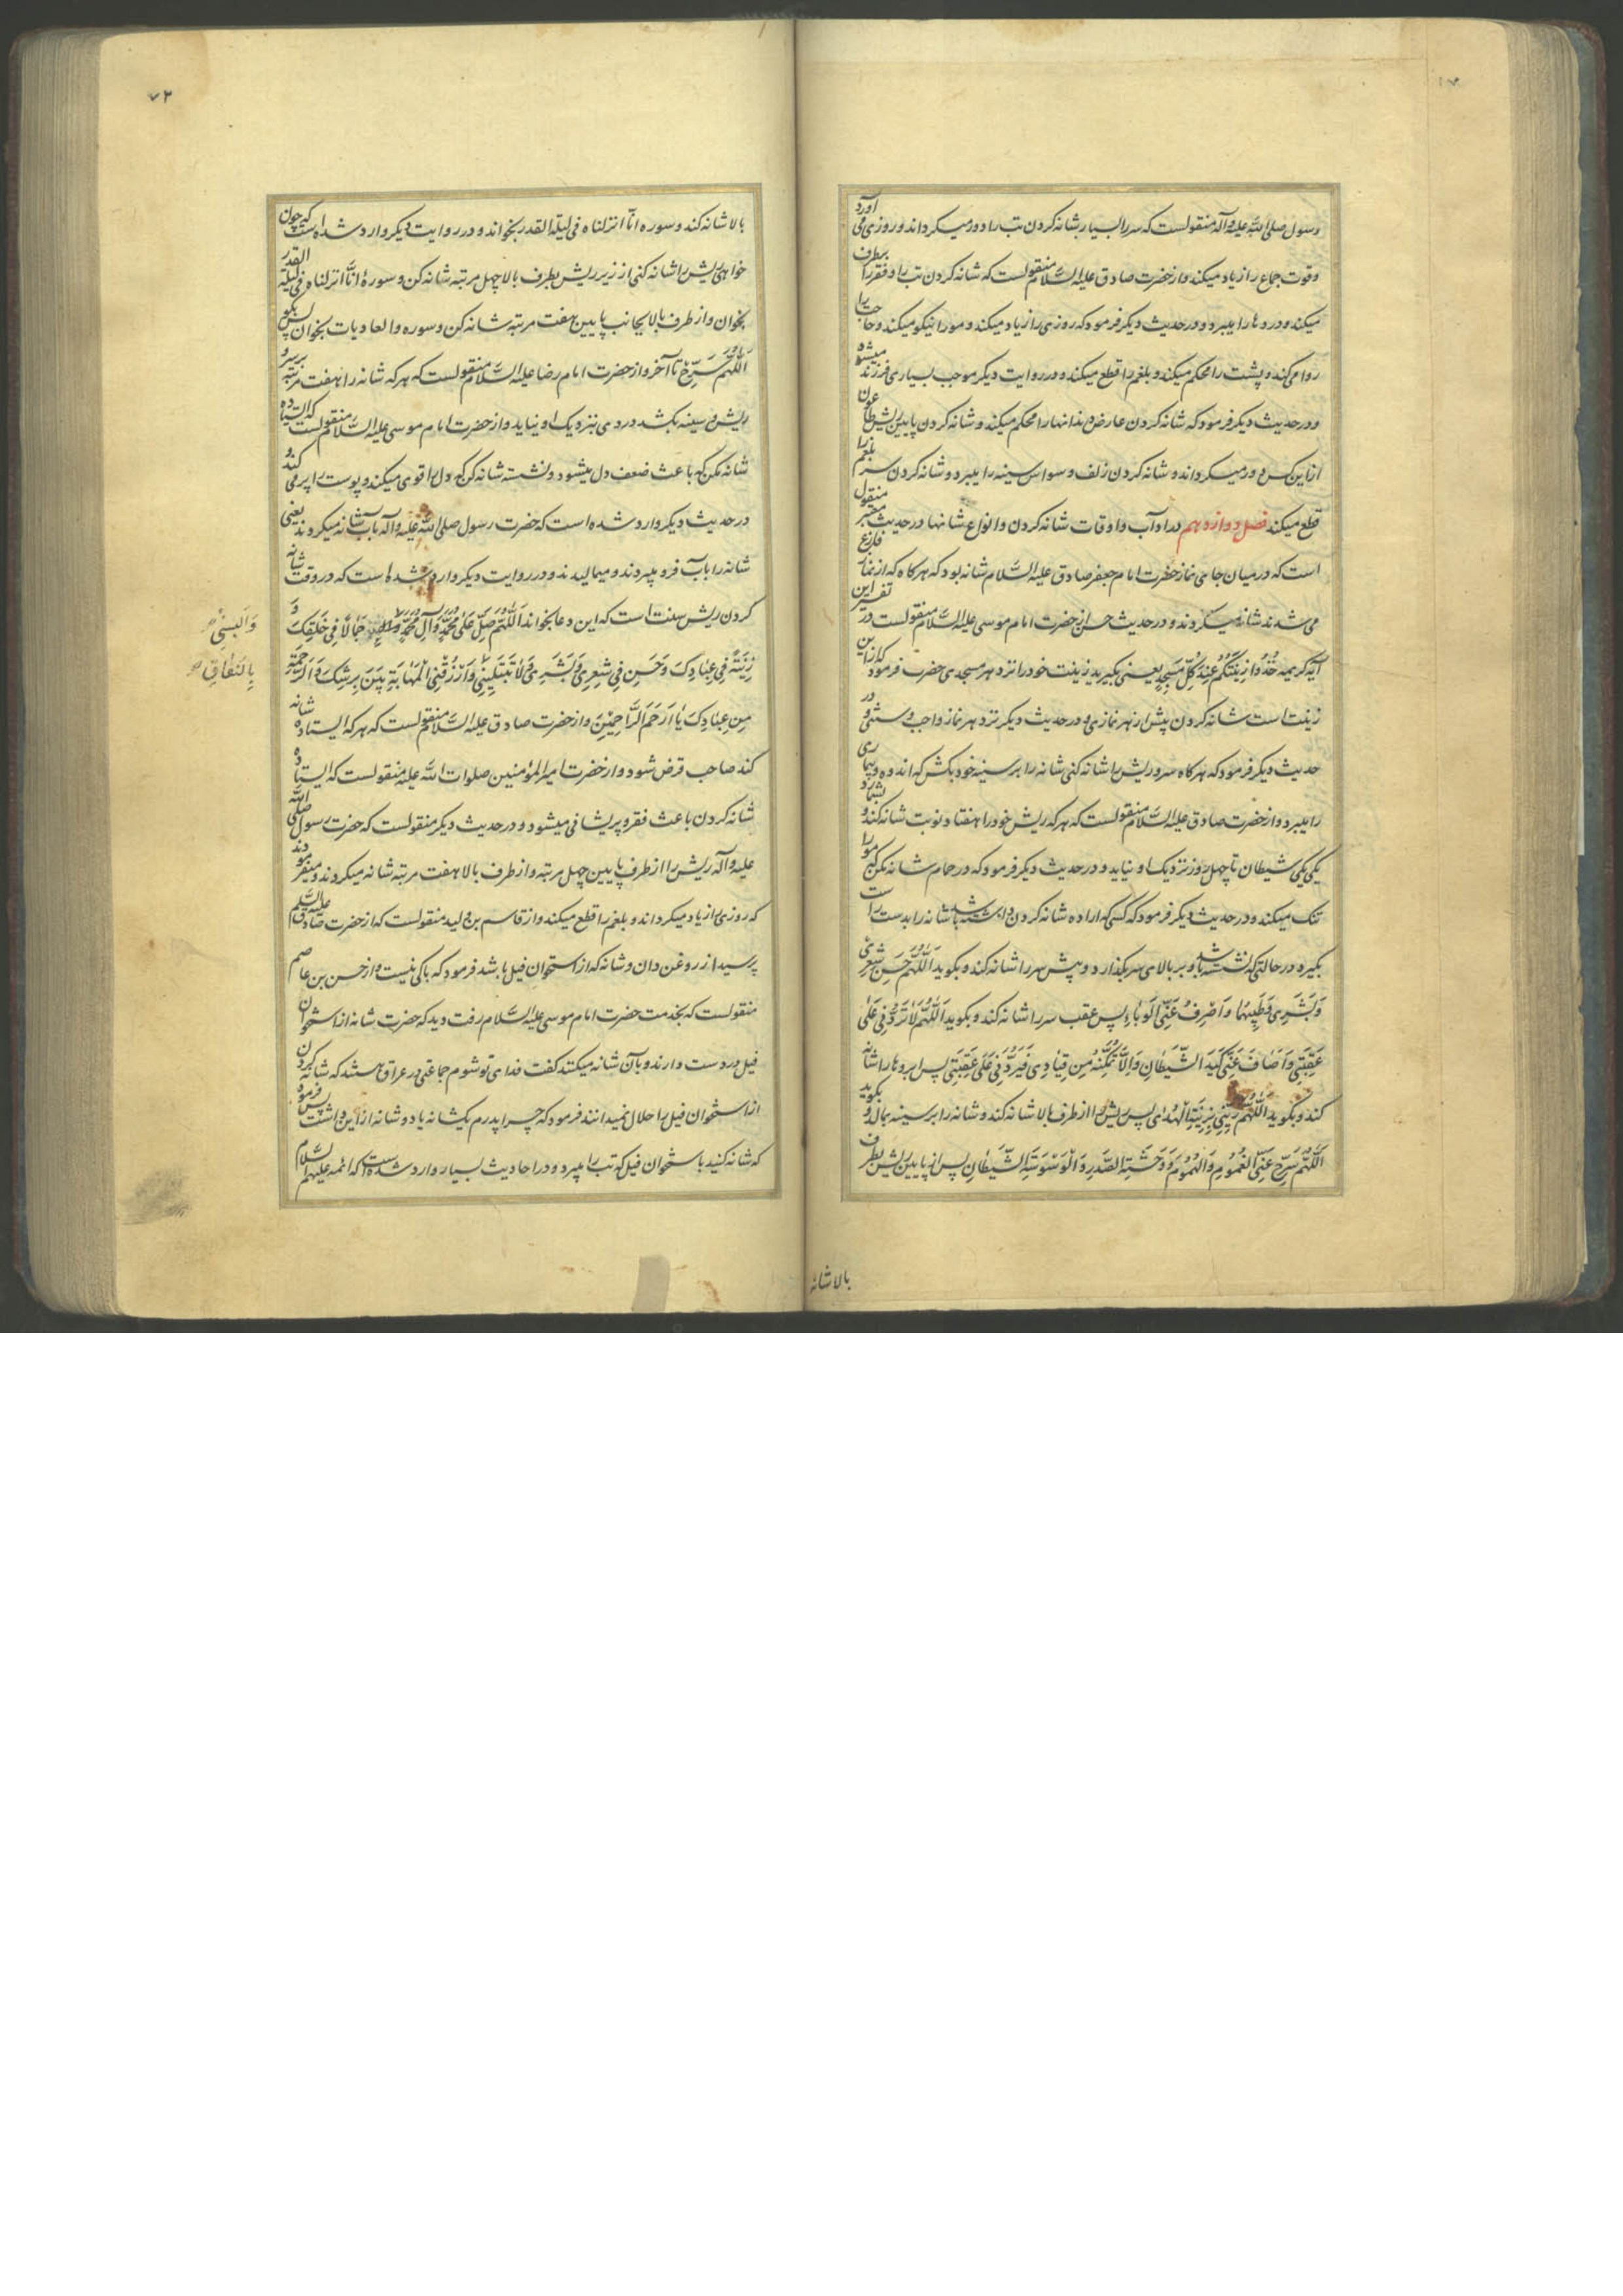 رسول صلی الله علیه وآله منقولست که سر را بسیار شانه کردن تب را دور میکرداند و روزی می آورد
وقوت جماع را زیاد میکند واز حضرت صادق علیه السّلام منقولست که شانه کردن تب را و فقر را بطرف
میکند و دردها را میبرد و در حدیث دیکر فرمود که روزی را زیاد میکند و مو را نیکو میکند و حاجت را
روا می کند و پشت را محکم میکند و بلغم را قطع میکند و در روایت دیکر موجب بسیاری فرزند میشود
و در حدیث دیکر فرمود که شانه کردن عارض دندانها را محکم میکند و شانه کردن پایین ریش طاعون
را از این کس دور میکرداند و شانه کردن زلف وسواس سینه را میبرد و شانه کردن سر بلغم را
قطع میکند فصل دوازدهم در آداب واوقات شانه کردن وانواع شانها در حدیث معتبر منقول
است که در میان جای نماز حضرت امام جعفر صادق علیه السّلام شانه بود که هرکاه که از نماز فارغ
می شدند شانه میکردند و در حدیث حسن از حضرت امام موسی علیه السّلام منقولست در تفسیر این
آیه کریمه خُذُوا زِینَتَکُمْ عِنْدَ کُلِّ مَسْجِدٍ یعنی بکیرید زینت خود را نزد هر مسجدی حضرت فرمود که از این
زینت است شانه کردن پیش از هر نمازی و در حدیث دیکر نزد هر نماز واجب و سنتی و در
حدیث دیکر فرمود که هرکاه سر و ریش را شانه کنی شانه را بر سینه خود بکش که اندوه و بیماری
را میبرد و از حضرت صادق علیه السّلام منقولست که هر که ریش خود را هفتاد نوبت شانه کند و بشمارد
یکی یکی شیطان تا چهل روز نزدیک او نیاید و در حدیث دیکر فرمود که در حمام شانه مکن که مو را
تنک میکند و در حدیث دیکر فرمود که کسی که اراده شانه کردن داشته باشد شانه را بدست راست
بکیرد در حالتی که نشسته باشد و بر بالای سر بکذارد و پیش سر را شانه کند و بکوید اَللّٰهُمَّ حَسِّنْ شَعْرِی
وَبَشَرِی وَطَیِّبْهُمَا وَاصْرِفْ عَنِّی الْوَبَاءَ پس عقب سر را شانه کند و بکوید اَللّٰهُمَّ لَا تَرُدَّنِی عَلٰی
عَقِبَیَّ وَاَصْرِفْ عَنِّی کَیْدَ الشَّیْطَانِ وَلَا تُمَکِّنْهُ مِنْ قِیَادِی فَیَرُدَّنِی عَلٰی عَقِبَیَّ پس ابروها را شانه
کند و بکوید اَللّٰهُمَّ زَیِّنِّی بِزِینَةِ الْهُدٰی پس ریش را از طرف بالا شانه کند و شانه را بر سینه بمالد و بکوید
اَللّٰهُمَّ سَرِّحْ عَنِّی الْغُمُومَ وَالْهُمُومَ وَوَحْشَةَ الصَّدْرِ وَالْوَسْوَسَةَ الشَّیْطَانِ پس از پایین ریش بطرف
بالا شانه
۷۲
بالا شانه کند و سوره انّا انزلناه فی لیلة القدر بخواند و در روایت دیکر وارد شده است که چون
خواهی ریش را شانه کنی از زیر ریش بطرف بالا چهل مرتبه شانه کن و سوره انّا انزلناه فی لیلة القدر
بخوان و از طرف بالا بجانب پایین هفت مرتبه شانه کن و سوره والعادیات بخوان پس بکو
اَللّٰهُمَّ سَرِّحْ تا آخر و از حضرت امام رضا علیه السّلام منقولست که هر که شانه را هفت مرتبه بر سر و
ریش و سینه بکشد دردی نزدیک او نیاید و از حضرت امام موسی علیه السّلام منقولست که ایستاده
شانه مکن که باعث ضعف دل میشود و نشسته شانه کن که دل را قوی میکند و پوست را پر می کند و
در حدیث دیکر وارد شده است که حضرت رسول صلی الله علیه وآله بآب شانه میکردند یعنی
شانه را بآب فرو میبردند و میمالیدند و در روایت دیکر وارد شده است که در وقت شانه
کردن ریش سنت است که این دعا بخواند اَللّٰهُمَّ صَلِّ عَلٰی مُحَمَّدٍ وَآلِ مُحَمَّدٍ جَمَالًا فِی خَلْقِکَ وَ
زِینَةً فِی عِبَادِکَ وَحَسِّنْ فِی شَعْرِی وَبَشَرِی وَلَا تَبْتَلِیَنِّی وَارْزُقْنِی الْمَهَابَةَ بَیْنَ بَرِیَّتِکَ وَالرَّحْمَةَ
مِنْ عِبَادِکَ یَا اَرْحَمَ الرَّاحِمِینَ و از حضرت صادق علیه السّلام منقولست که هر که ایستاده شانه
کند صاحب قرض شود و از حضرت امیرالمؤمنین صلوات الله علیه منقولست که ایستاده
شانه کردن باعث فقر و پریشانی میشود و در حدیث دیکر منقولست که حضرت رسول صلی الله
علیه وآله ریش را از طرف پایین چهل مرتبه و از طرف بالا هفت مرتبه شانه میکردند و میفرمودند
که روزی را زیاد میکرداند و بلغم را قطع میکند و از قاسم بن ولید منقولست که از حضرت صادق علیه السّلم
پرسید از روغن دان و شانه که از استخوان فیل باشد فرمود که باکی نیست و از حسن بن عاصم
منقولست که بخدمت حضرت امام موسی علیه السّلام رفت و دید که حضرت شانه از استخوان
فیل در دست دارند و بآن شانه میکنند کفت فدای تو شوم جماعتی در عراق هستند که شانه کردن
از استخوان فیل را حلال نمیدانند فرمود که چرا پدرم یکشانه یا دو شانه از این داشت پس فرمود
که شانه کنید باستخوان فیل که تب را میبرد و در احادیث بسیار وارد شده است که ائمه علیهم السّلام
وَاَلْبِسْنِی